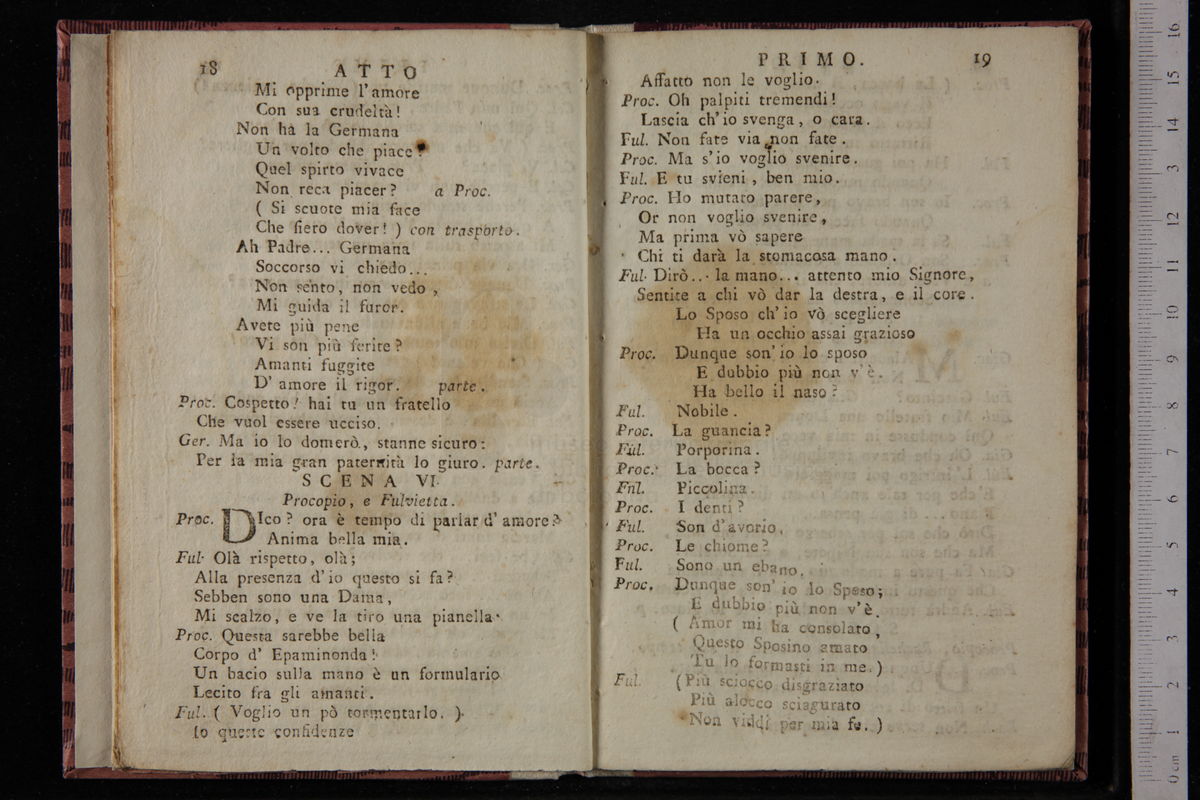 18 ATTO
Mi opprime l'amore
Con sua crudeltà!
Non ha la Germana
Un volto che piace?
Quel spirto vivace
Non reca piacer? a Proc.
( Si scuote mia face
Che fiero dover! ) con trasporto.
Ah Padre... Germana
Soccorso vi chiedo...
Non sento, non vedo,
Mi guida il furor.
Avete più pene
Vi son più ferite?
Amanti fuggite
D' amore il rigor. parte.
Proc. Cospetto! hai tu un fratello
Che vuol essere ucciso.
Ger. Ma io lo domerò, stanne sicuro:
Per la mia gran paternità lo giuro. parte.
SCENA VI.
Procopio, e Fulvietta.
Proc. DIco? ora è tempo di parlar d'amore?
Anima bella mia.
Ful. Olà rispetto, olà;
Alla presenza d'io questo si fa?
Sebben sono una Dama,
Mi scalzo, e ve la tiro una pianella.
Proc. Questa sarebbe bella
Corpo d' Epaminonda!
Un bacio sulla mano è un formulario
Lecito fra gli amanti.
Ful. ( Voglio un pò tormentarlo. )
Io queste confidenze
PRIMO. 19
Affatto non le voglio.
Proc. Oh palpiti tremendi!
Lascia ch'io svenga, o cara.
Ful. Non fate via non fate.
Proc. Ma s'io voglio svenire.
Ful. E tu svieni, ben mio.
Proc. Ho mutato parere,
Or non voglio svenire,
Ma prima vò sapere
Chi ti darà la stomacosa mano.
Ful. Dirò... la mano... attento mio Signore,
Sentite a chi vò dar la destra, e il core.
Lo Sposo ch'io vò scegliere
Ha un occhio assai grazioso
Proc. Dunque son'io lo sposo
E dubbio più non v'è.
Ha bello il naso?
Ful. Nobile.
Proc. La guancia?
Ful. Porporina.
Proc. La bocca?
Ful. Piccolina.
Proc. I denti?
Ful. Son d'avorio,
Proc. Le chiome?
Ful. Sono un ebano.
Proc. Dunque son' io lo Sposo;
E dubbio più non v'è.
( Amor mi ha consolato,
Questo Sposino amato
Tu lo formasti in me. )
Ful. (Più sciocco disgraziato
Più alocco sciagurato
Non viddi per mia fe. )